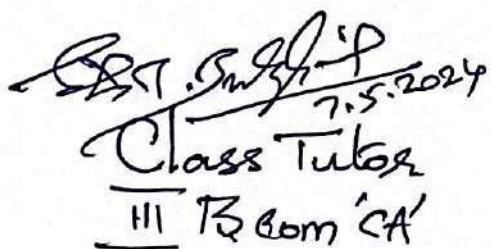 7.5.2024
Class Tutor
III B com 'CA'